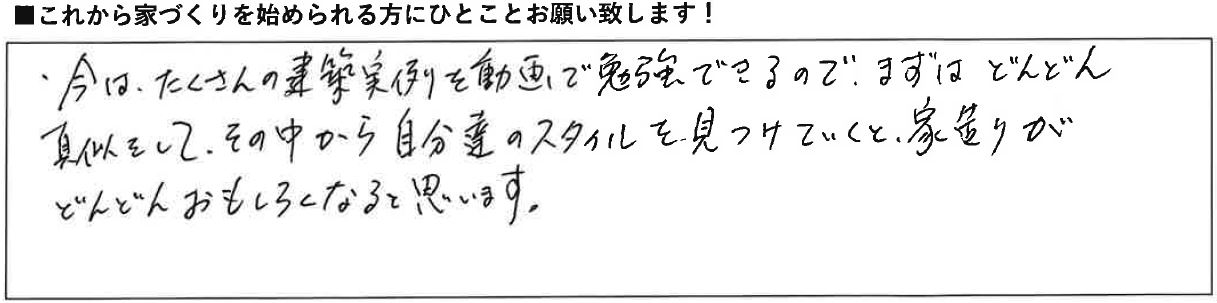 ■これから家づくりを始められる方にひとことお願い致します！
・今は、たくさんの建築実例を動画で勉強できるので、まずは どんどん
真似をして、その中から自分達のスタイルを見つけていくと、家造りが
どんどんおもしろくなると思います。